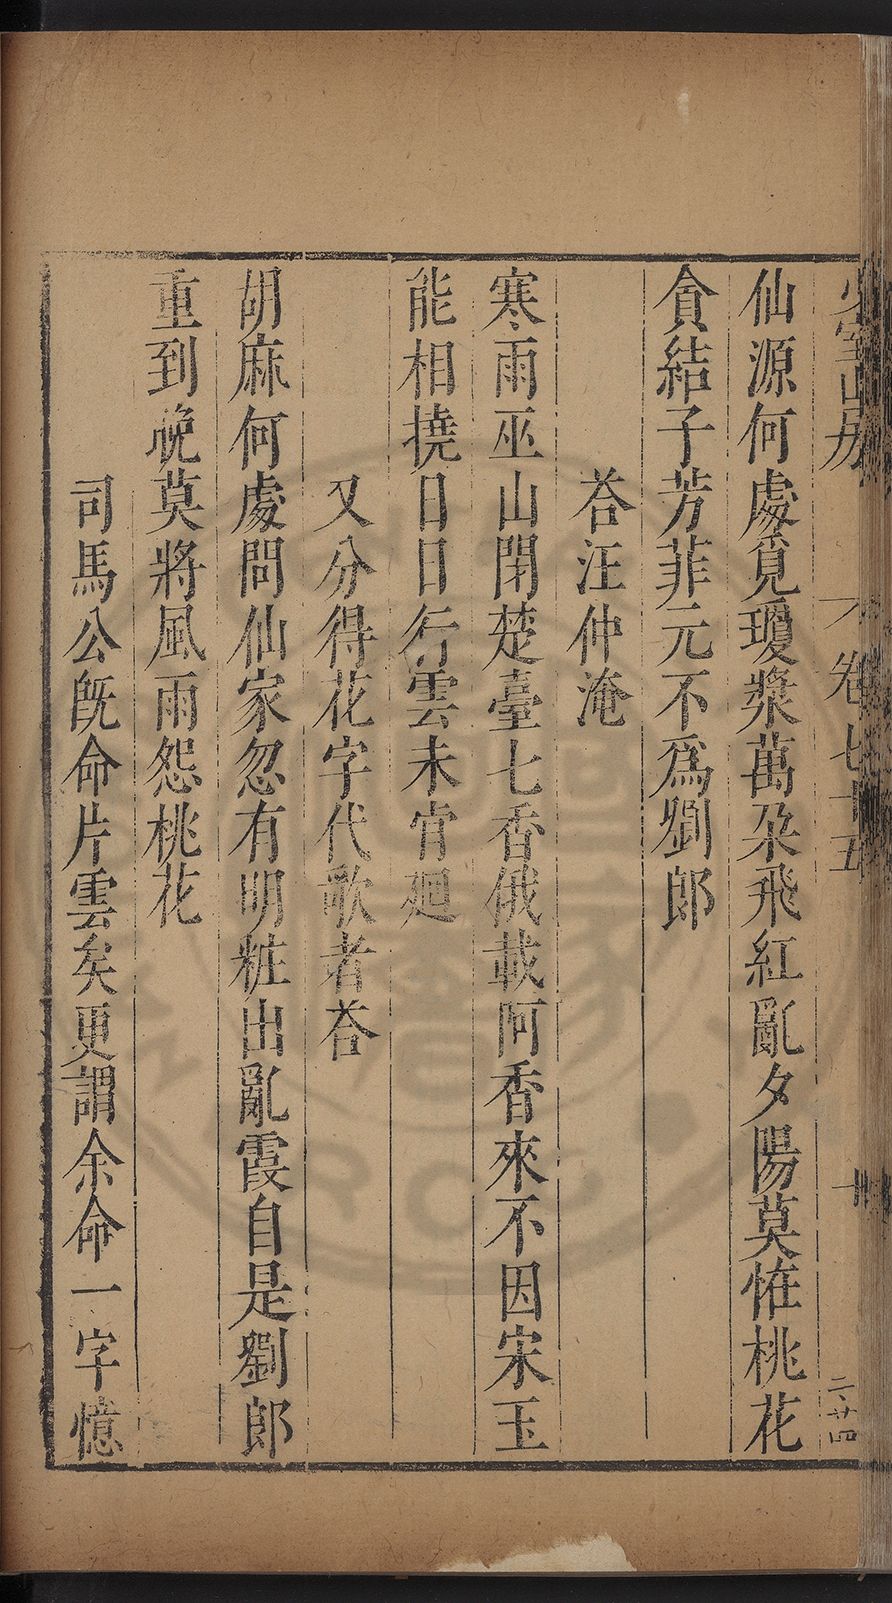 少室山房 卷七十五 十 二廿四
仙源何處覓瓊漿萬朶飛紅亂夕陽莫恠桃花
貪結子芳菲元不爲劉郎
荅汪仲淹
寒雨巫山閉楚臺七香俄載阿香來不因宋玉
能相撓日日行雲未肯廻
又分得花字代歌者荅
胡麻何處問仙家忽有明粧出亂霞自是劉郎
重到晚莫將風雨怨桃花
司馬公旣命片雲矣更謂余命一字憶